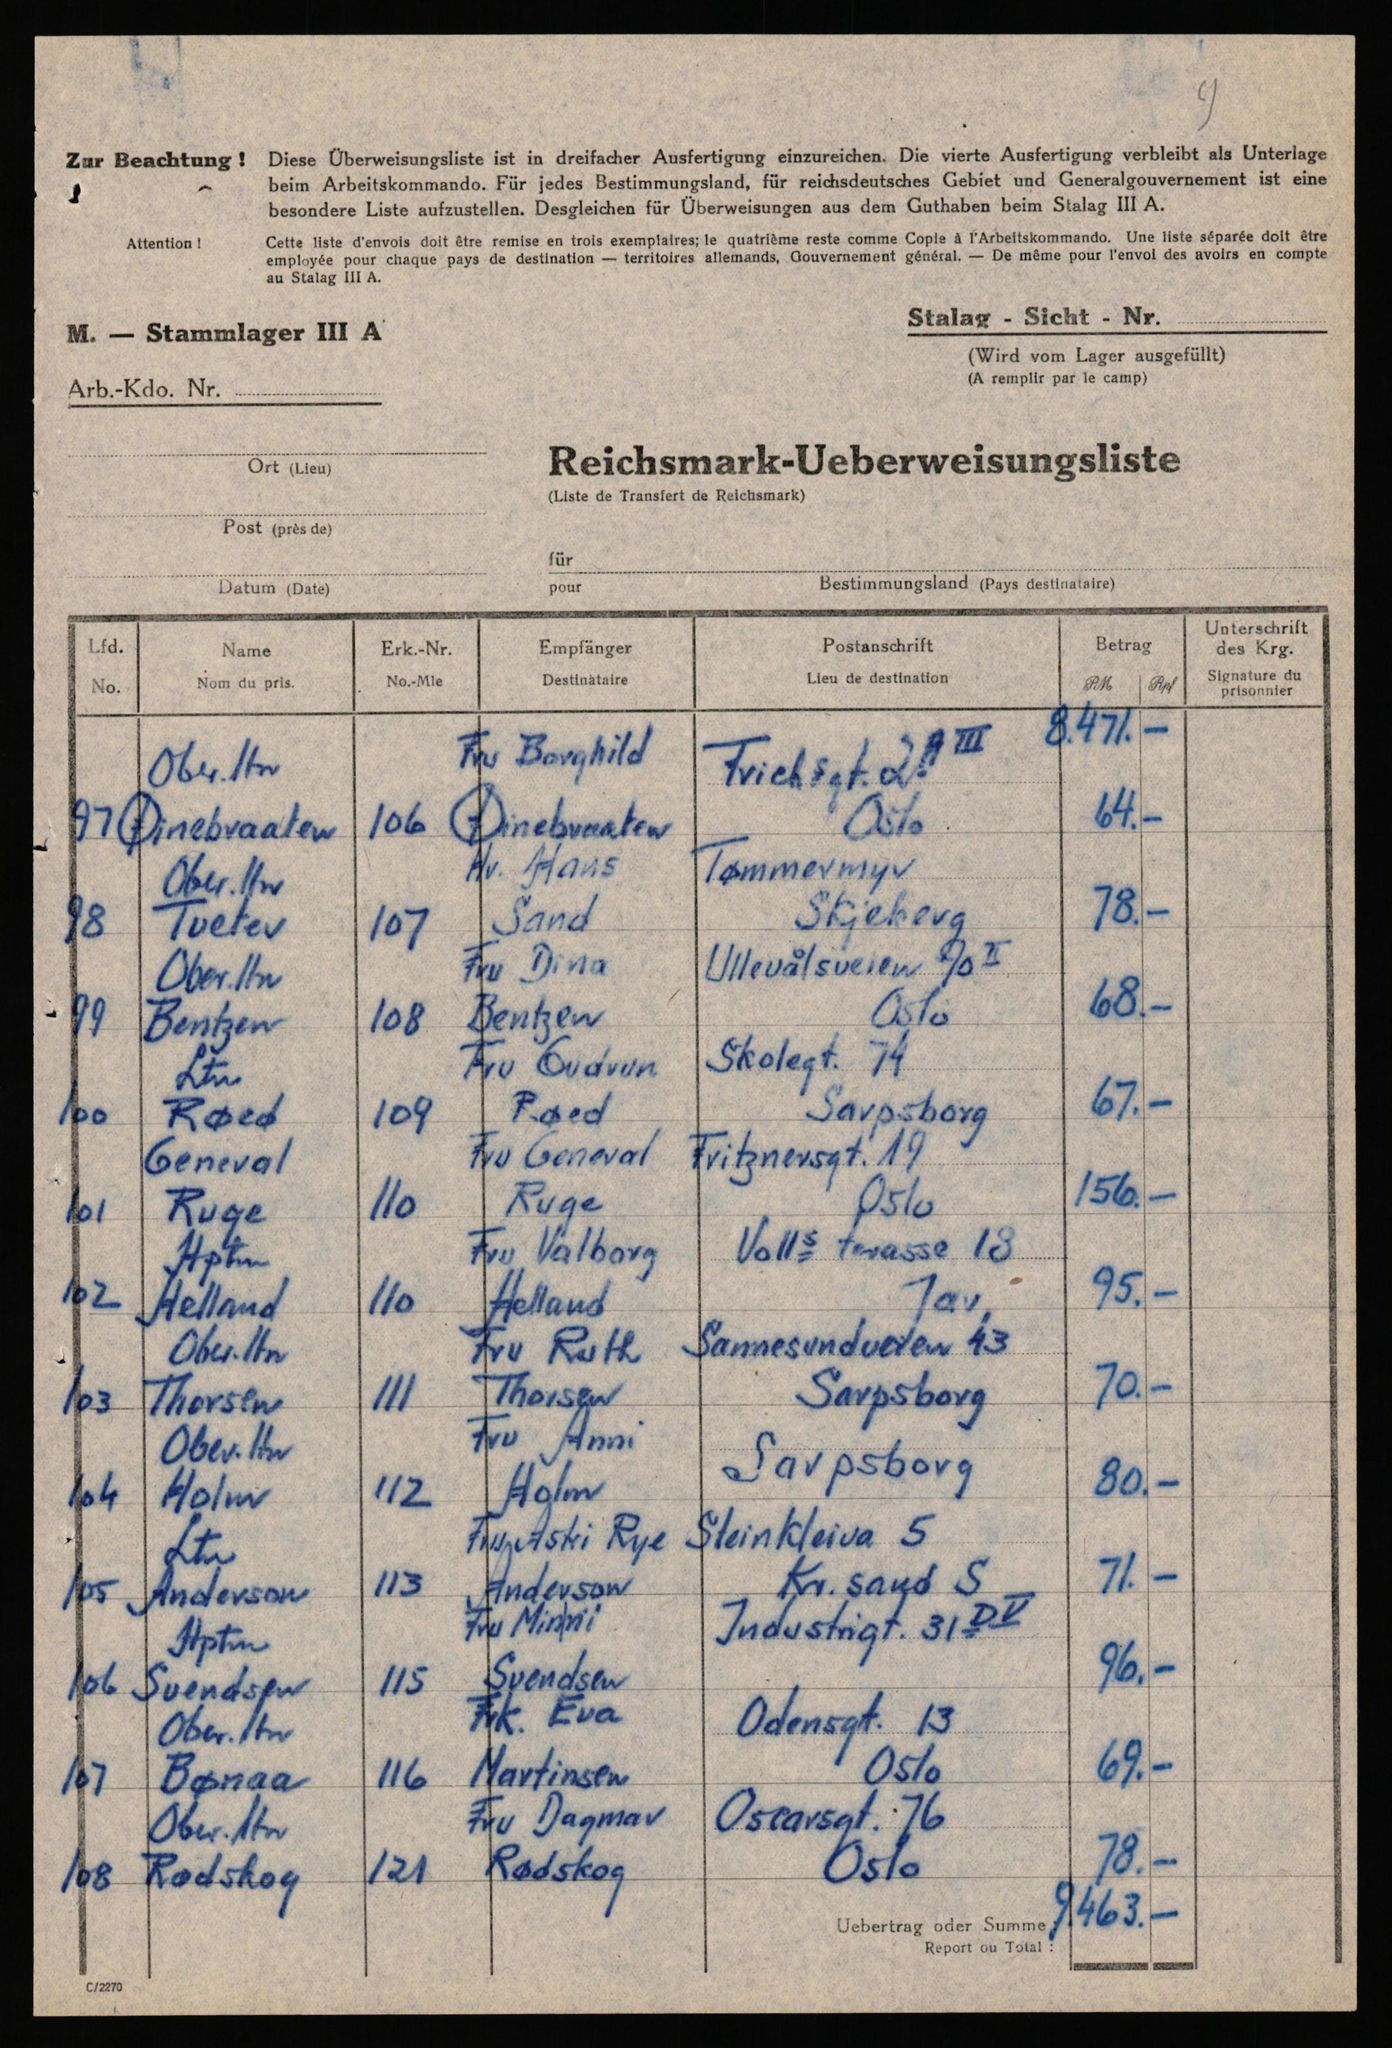 Zur Beachtung ! Diese Überweisungsliste ist in dreifacher Ausfertigung einzureichen. Die vierte Ausfertigung verbleibt als Unterlage
beim Arbeitskommando. Für jedes Bestimmungsland, für reichsdeutsches Gebiet und Generalgouvernement ist eine
besondere Liste aufzustellen. Desgleichen für Überweisungen aus dem Guthaben beim Stalag III A.
Attention ! Cette liste d'envois doit être remise en trois exemplaires; le quatrième reste comme Copie à l'Arbeitskommando. Une liste séparée doit être
employée pour chaque pays de destination — territoires allemands, Gouvernement général. — De même pour l'envoi des avoirs en compte
au Stalag III A.
M. — Stammlager III A
Stalag - Sicht - Nr.
(Wird vom Lager ausgefüllt)
(A remplir par le camp)
Arb.-Kdo. Nr.
Ort (Lieu)
Reichsmark-Ueberweisungsliste
(Liste de Transfert de Reichsmark)
Post (près de)
für
Datum (Date)
pour Bestimmungsland (Pays destinataire)
Lfd. Name Erk.-Nr. Empfänger Postanschrift Betrag Unterschrift des Krg.
No. Nom du pris. No.-Mle Destinataire Lieu de destination RM Rpf Signature du prisonnier
8.471.-
Ober.ltn Fru Borghild Frichsgt. 2A III
97 Dinebraaten 106 Dinebraaten Oslo 64.-
Ober.ltn Hr. Hans Tømmermyr
98 Tveter 107 Sand Skjeberg 78.-
Ober.ltn Fru Dina Ullevålsveien 90 II
99 Bentzen 108 Bentzen Oslo 68.-
Ltn Fru Gudrun Skolegt. 74
100 Røed 109 Røed Sarpsborg 67.-
General Fru General Fritznersgt. 19
101 Ruge 110 Ruge Oslo 156.-
Hptm Fru Valborg Volls terasse 18
102 Helland 110 Helland Jar, 95.-
Ober.ltn Fru Ruth Sannesundveien 43
103 Thorsen 111 Thorsen Sarpsborg 70.-
Ober.ltn Fru Anni Sarpsborg
104 Holm 112 Holm 80.-
Ltn Fru Astri Rye Steinkleiva 5
105 Anderson 113 Anderson Kr. sand S 71.-
Hptm Fru Minni Industrigt. 31 D V
106 Svendsen 115 Svendsen 96.-
Ober.ltn Frk. Eva Odensgt. 13
107 Bønaa 116 Martinsen Oslo 69.-
Ober.ltn Fru Dagmar Oscarsgt. 76
108 Rødskog 121 Rødskog Oslo 78.-
Uebertrag oder Summe 9.463.-
Report ou Total :
C/2270